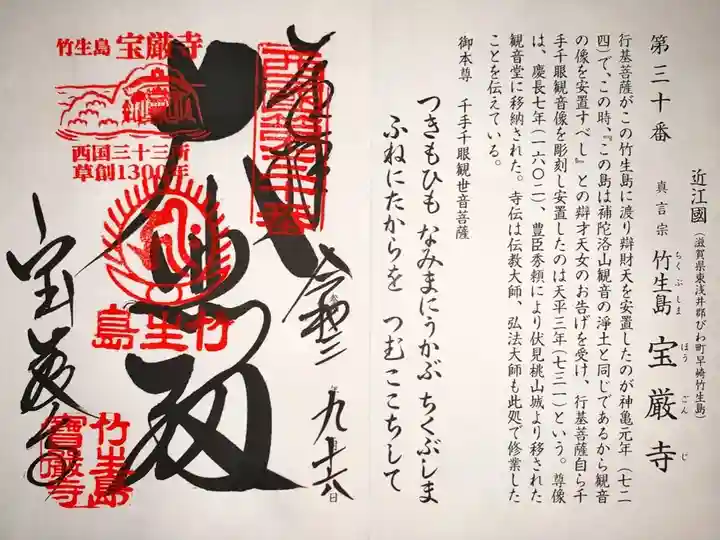 第三十番
近江國(滋賀県東浅井郡びわ町早崎竹生島)
真言宗 竹生島 宝厳寺
ちくぶしま ほうごんじ
行基菩薩がこの竹生島に渡り辯財天を安置したのが神亀元年(七二
四)で、この時、『この島は補陀洛山観音の浄土と同じであるから観音
の像を安置すべし』との辯才天女のお告げを受け、行基菩薩自ら千
手千眼観音像を彫刻し安置したのは天平三年(七三一)という。尊像
は、慶長七年(一六〇二)、豊臣秀頼により伏見桃山城より移された
観音堂に移納された。寺伝は伝教大師、弘法大師も此処で修業した
ことを伝えている。
御本尊 千手千眼観世音菩薩
つきもひも なみまにうかぶ ちくぶしま
ふねにたからを つむここちして
竹生島 宝厳寺
西国三十三所
草創1300年
竹生島
令和二
年九月十六日
大悲殿
宝厳寺
竹生島
寳嚴寺